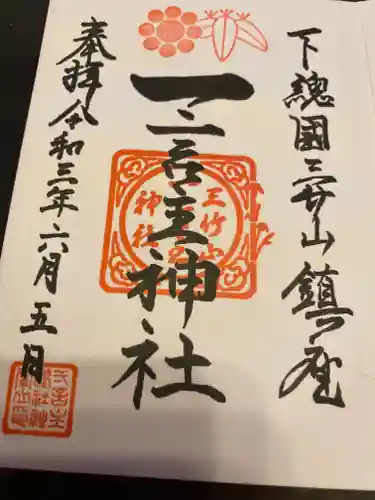 下總國三竹山鎮座
一言主神社
三竹山
神社
奉拝令和三年六月五日